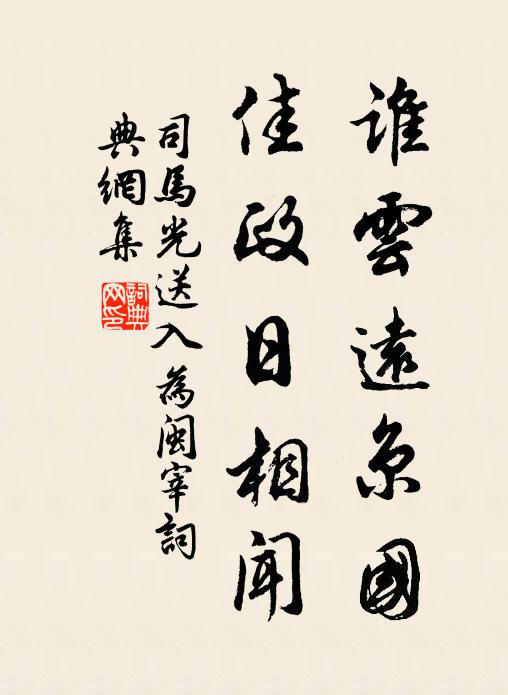 誰雲遠京國
佳政日相聞
司馬光送入為閩宰詞
典網集
詞典网印